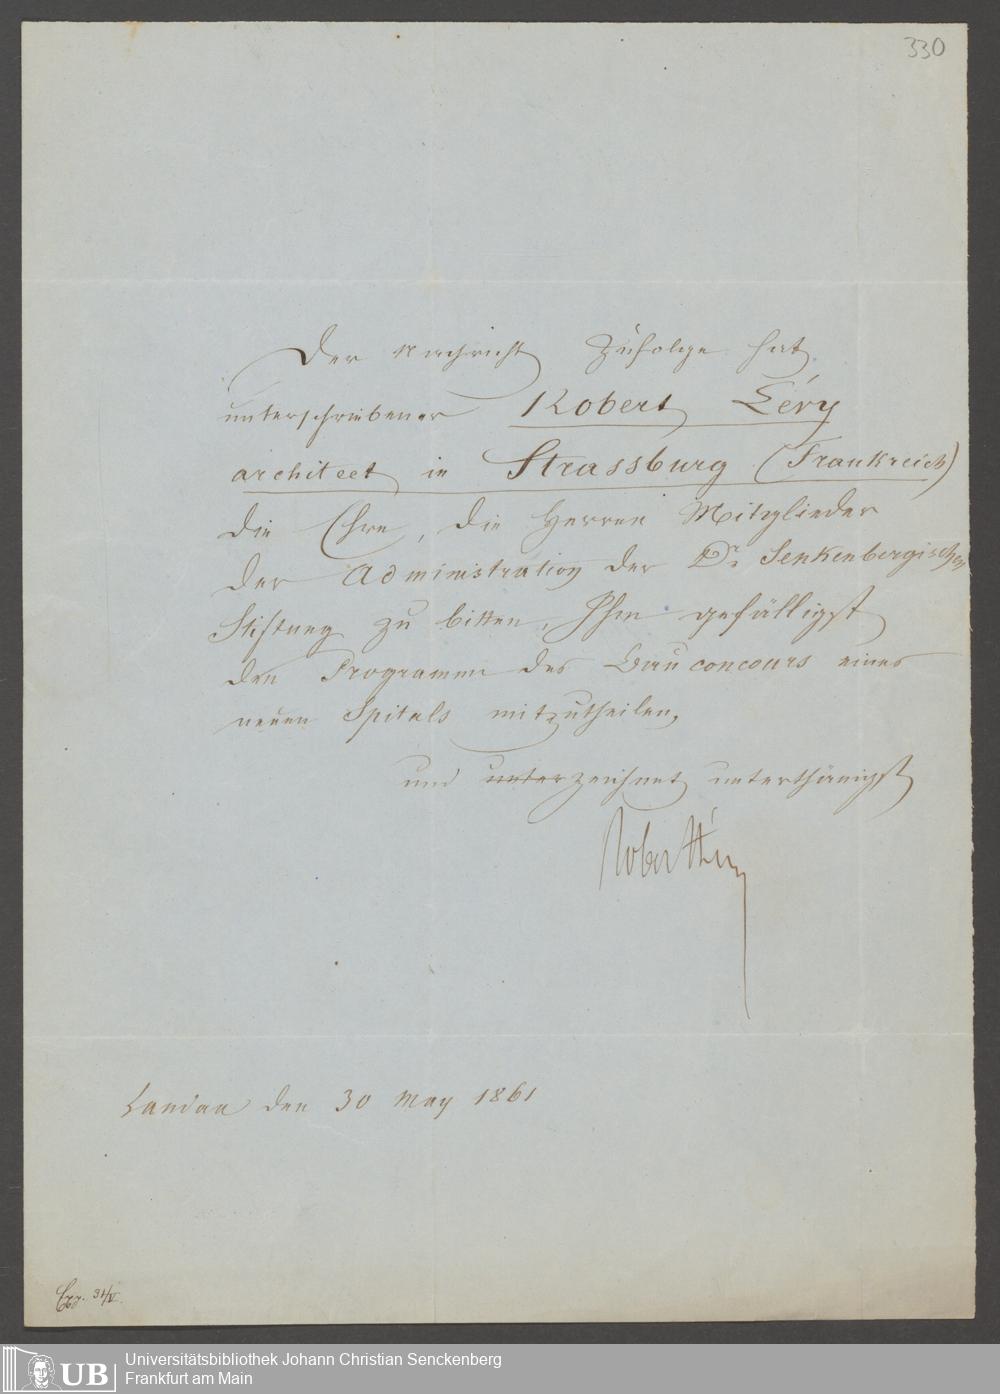 330
Der Nachricht zufolge hat
unterschriebener Robert Lévy
architect in Strassburg (Frankreich)
die Ehre, die Herren Mitglieder
der Administration der Dr. Senkenbergischen
Stiftung zu bitten, Ihm gefälligst
den Programm des Bauconcours eines
neuen Spitals mitzutheilen,
und unterzeichnet unterthänigst
Robert Lévy
Landau den 30 May 1861
31/V.
Universitätsbibliothek Johann Christian Senckenberg
UB Frankfurt am Main